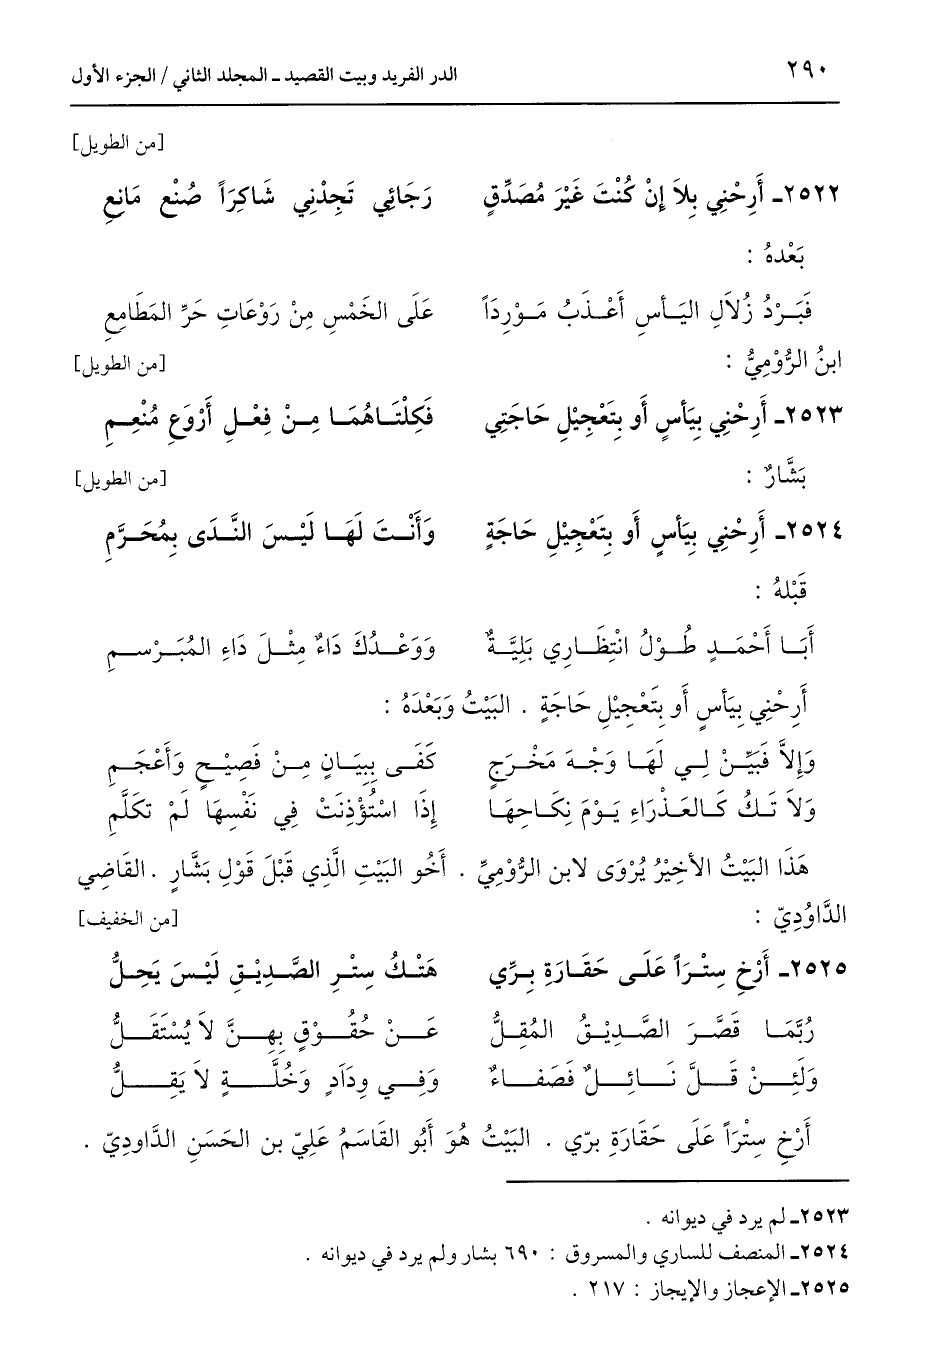 ٢٩٠ الدر الفريد وبيت القصيد ـ المجلد الثاني / الجزء الأول
[من الطويل]
٢٥٢٢ـ أَرِحْنِي بِلاَ إِنْ كُنْتَ غَيْرَ مُصَدِّقٍ رَجَائِي تَجِدْنِي شَاكِرَاً صُنْعِ مَانِعِ
بَعْدهُ :
فَبَرْدُ زُلاَلِ اليَأسِ أَعْذَبُ مَوْرِدَاً عَلَى الخَمْسِ مِنْ رَوْعَاتِ حَرِّ المَطَامِعِ
ابنُ الرُّوْمِيُّ : [من الطويل]
٢٥٢٣ـ أَرِحْنِي بِيَأسٍ أَو بِتَعْجِيْلِ حَاجَتِي فَكِلْتَاهُمَا مِنْ فِعْلِ أَرْوَعِ مُنْعِمِ
بَشَّارٌ : [من الطويل]
٢٥٢٤ـ أَرِحْنِي بِيَأسٍ أَو بِتَعْجِيْلِ حَاجَةٍ وَأَنْتَ لَهَا لَيْسَ النَّدَى بِمُحَرَّمِ
قَبْلهُ :
أَبَا أَحْمَدٍ طُوْلُ انْتِظَارِي بَلِيَّةٌ وَوَعْدُكَ دَاءٌ مِثْلَ دَاءِ المُبَرْسمِ
أَرِحْنِي بِيَأسٍ أَو بِتَعْجِيْلِ حَاجَةٍ . البَيْتُ وَبَعْدَهُ :
وَإِلاَّ فَبَيِّنْ لِي لَهَا وَجْهَ مَخْرَجٍ كَفَى بِبِيَانٍ مِنْ فَصِيْحٍ وَأَعْجَمِ
وَلاَ تَكُ كَالعَذْرَاءِ يَوْمَ نِكَاحِهَا إِذَا اسْتُؤْذِنَتْ فِي نَفْسِهَا لَمْ تكَلَّمِ
هَذَا البَيْتُ الأَخِيْرُ يُرْوَى لابنِ الرُّوْمِيِّ . أَخُو البَيْتِ الَّذِي قَبْلَ قَوْلِ بَشَّارٍ . القَاضِي
الدَّاوُدِيّ : [من الخفيف]
٢٥٢٥ـ أَرْخِ سِتْرَاً عَلَى حَقَارَةِ بِرِّي هَتْكُ سِتْرِ الصَّدِيْقِ لَيْسَ يَحِلُّ
رُبَّمَا قَصَّرَ الصَّدِيْقُ المُقِلُّ عَنْ حُقُوْقٍ بِهِنَّ لاَ يُسْتَقَلُّ
وَلَئِنْ قَلَّ نَائِلٌ فَصَفَاءٌ وَفِي وِدَادٍ وَخُلَّةٍ لاَ يَقِلُّ
أَرْخِ سِتْرَاً عَلَى حَقَارَةِ برّي . البَيْتُ هُوَ أَبُو القَاسَمُ عَلِيّ بن الحَسَنِ الدَّاودِيّ .
٢٥٢٣ـ لم يرد في ديوانه .
٢٥٢٤ـ المنصف للساري والمسروق : ٦٩٠ بشار ولم يرد في ديوانه .
٢٥٢٥ـ الإعجاز والإيجاز : ٢١٧ .